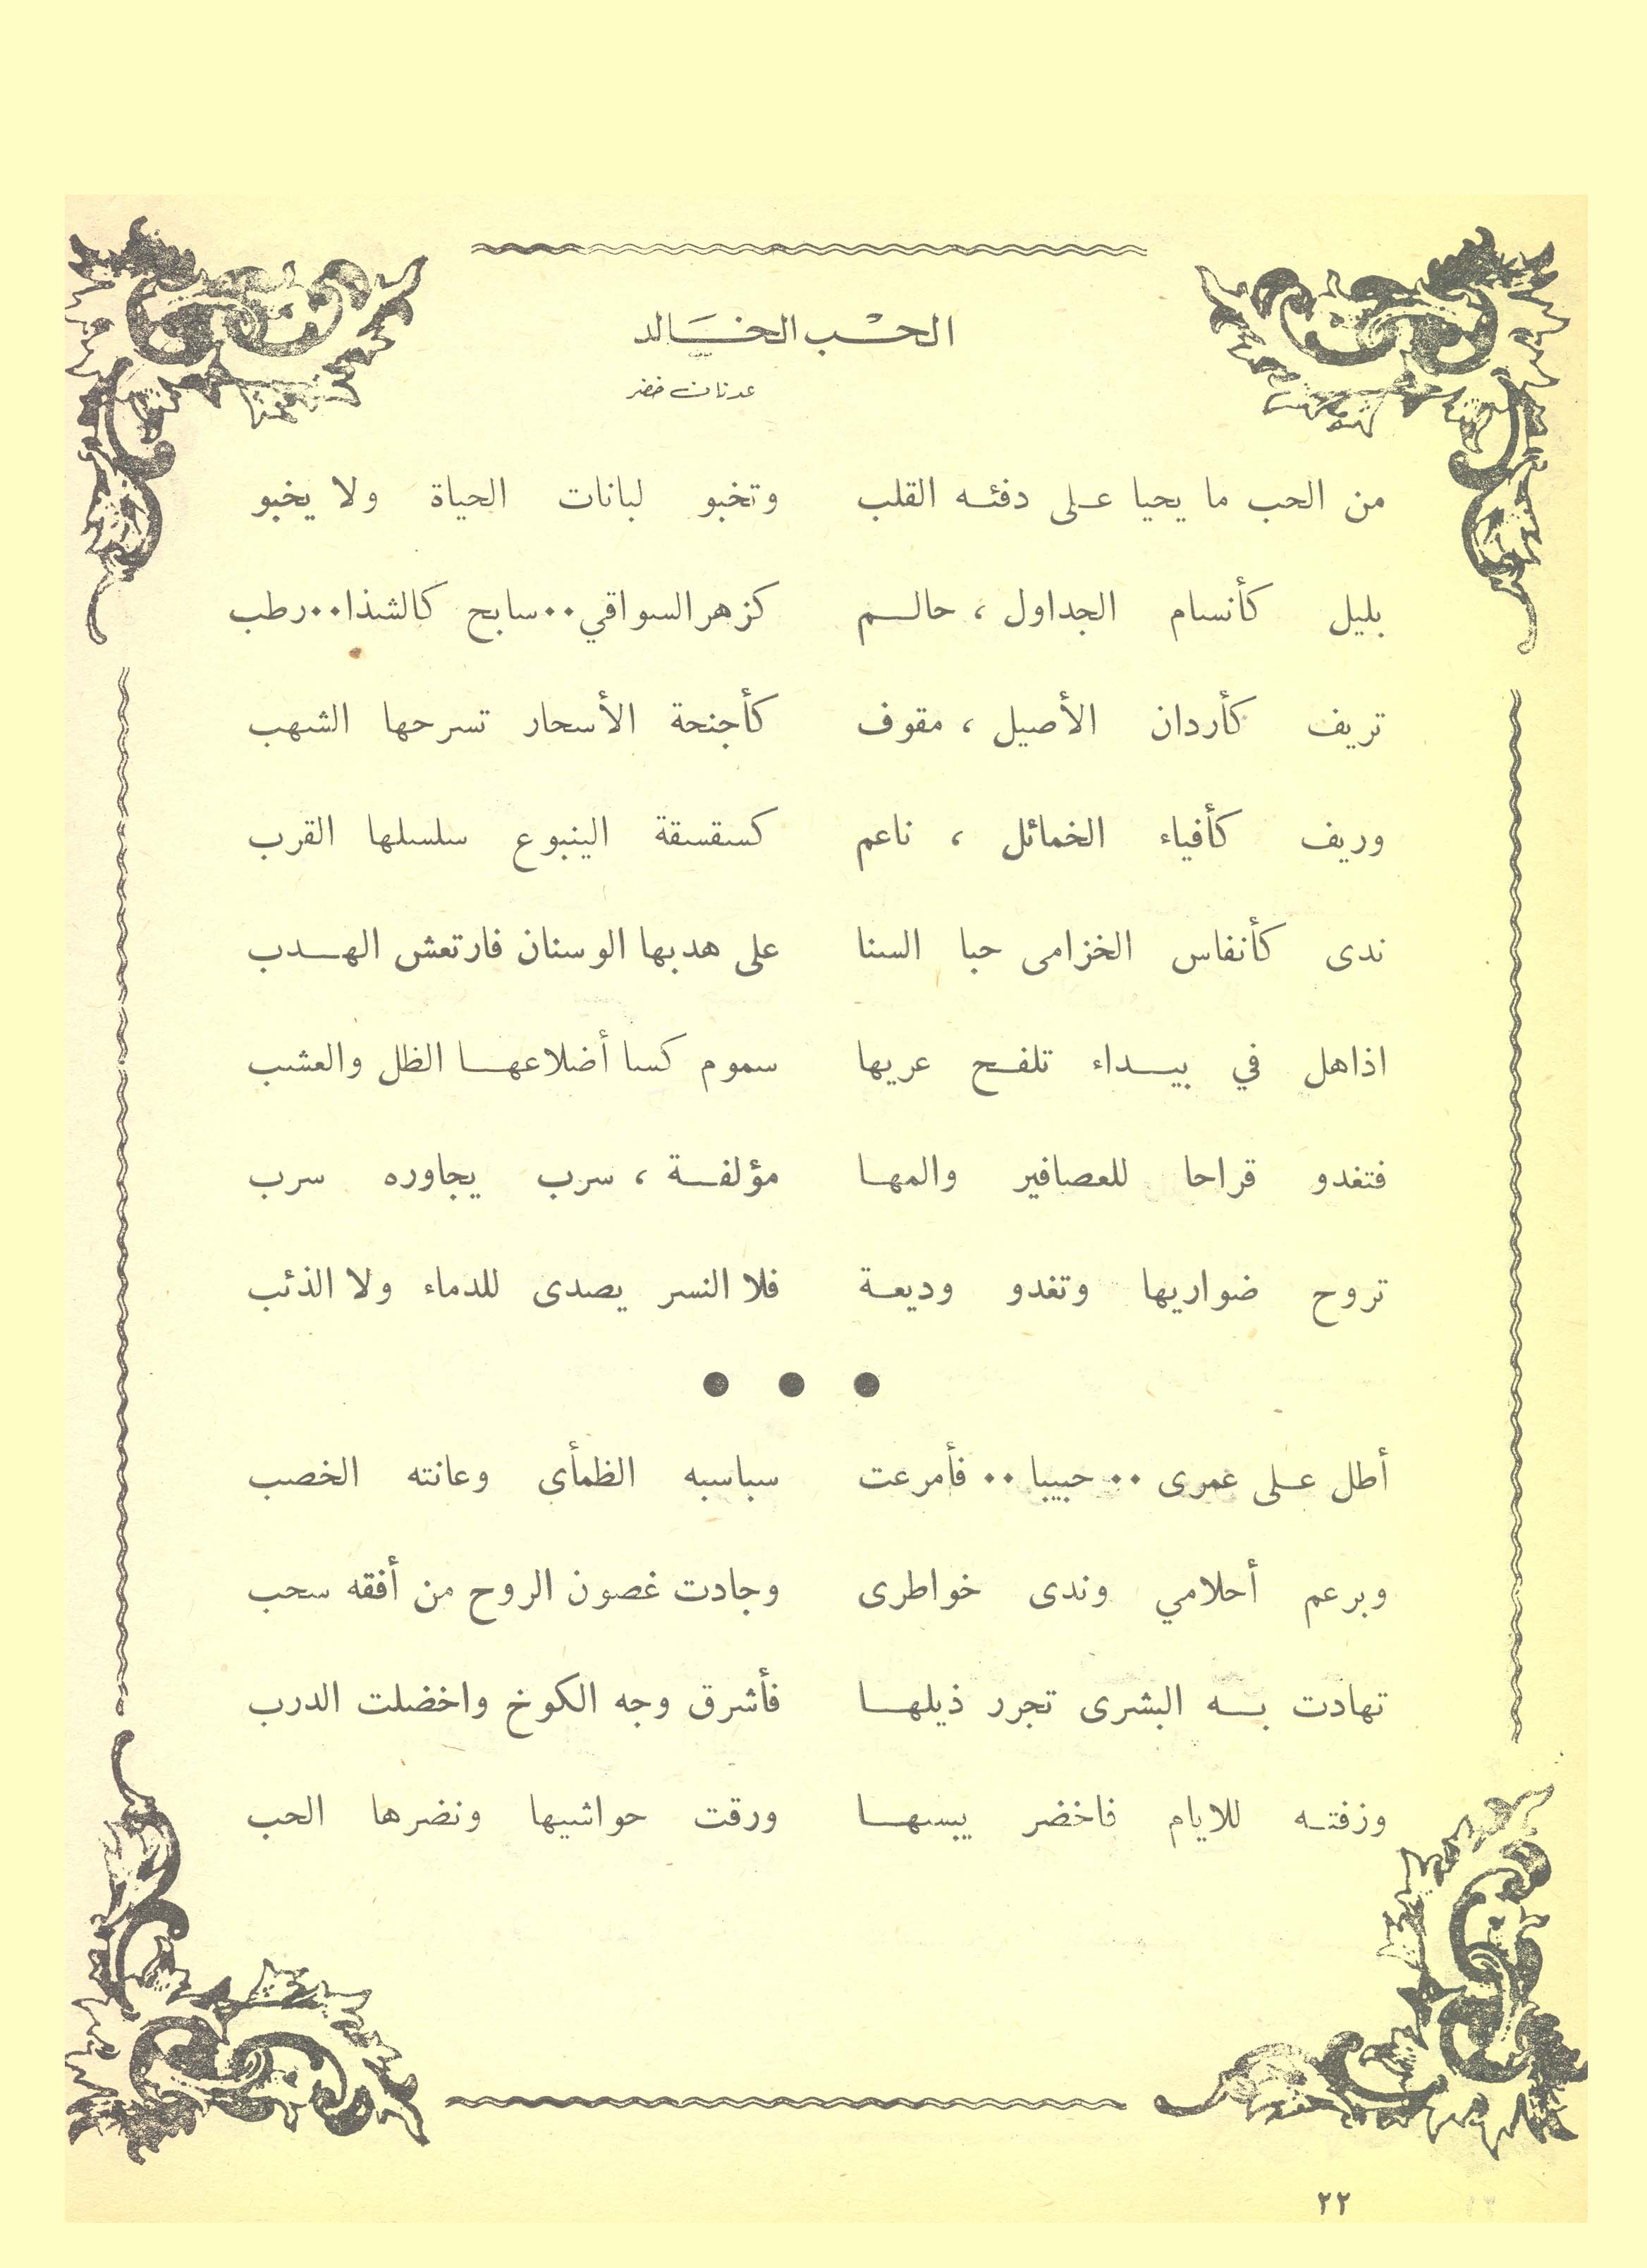 الحب الخالد
عدنان خضر
من الحب ما يحيا على دفئه القلب وتخبو لبانات الحياة ولا يخبو
بليل كأنسام الجداول ، حالم كزهر السواقي ٠٠ سابح كالشذا ٠٠ رطب
تريف كأردان الأصيل ، مقوف كأجنحة الأسحار تسرحها الشهب
وريف كأفياء الخمائل ، ناعم كسقسقة الينبوع سلسلها القرب
ندى كأنفاس الخزامى حبا السنا على هدبها الوسنان فارتعش الهدب
اذاهل في بيداء تلفح عريها سموم كسا أضلاعها الظل والعشب
فتغدو قراحا للعصافير والمها مؤلفة ، سرب يجاوره سرب
تروح ضواريها وتغدو وديعة فلا النسر يصدى للدماء ولا الذئب
● ● ●
أطل على عمرى ٠٠ حبيبا ٠٠ فأمرعت سباسبه الظمأى وعانته الخصب
وبرعم أحلامي وندى خواطرى وجادت غصون الروح من أفقه سحب
تهادت به البشرى تجرر ذيلها فأشرق وجه الكوخ واخضلت الدرب
وزفته للايام فاخضر يبسها ورقت حواشيها ونضرها الحب
٢٢